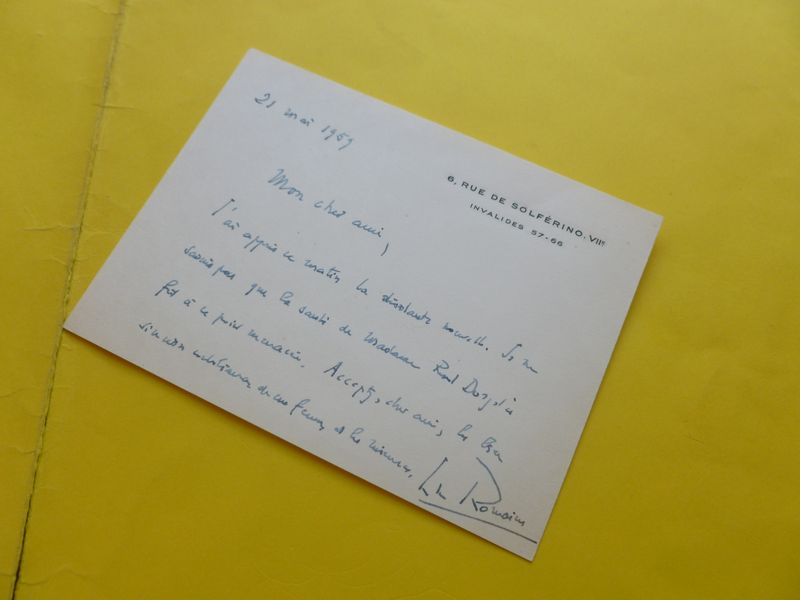 21 mai 1959
6, RUE DE SOLFÉRINO, VIIE
INVALIDES 57-66
Mon cher ami,
J'ai appris ce matin la désolante nouvelle. Je ne
savais pas que la santé de Madame Dorgelès
fût à ce point menacée. Acceptez, cher ami, les
condoléances de ma femme et les miennes,
Romains